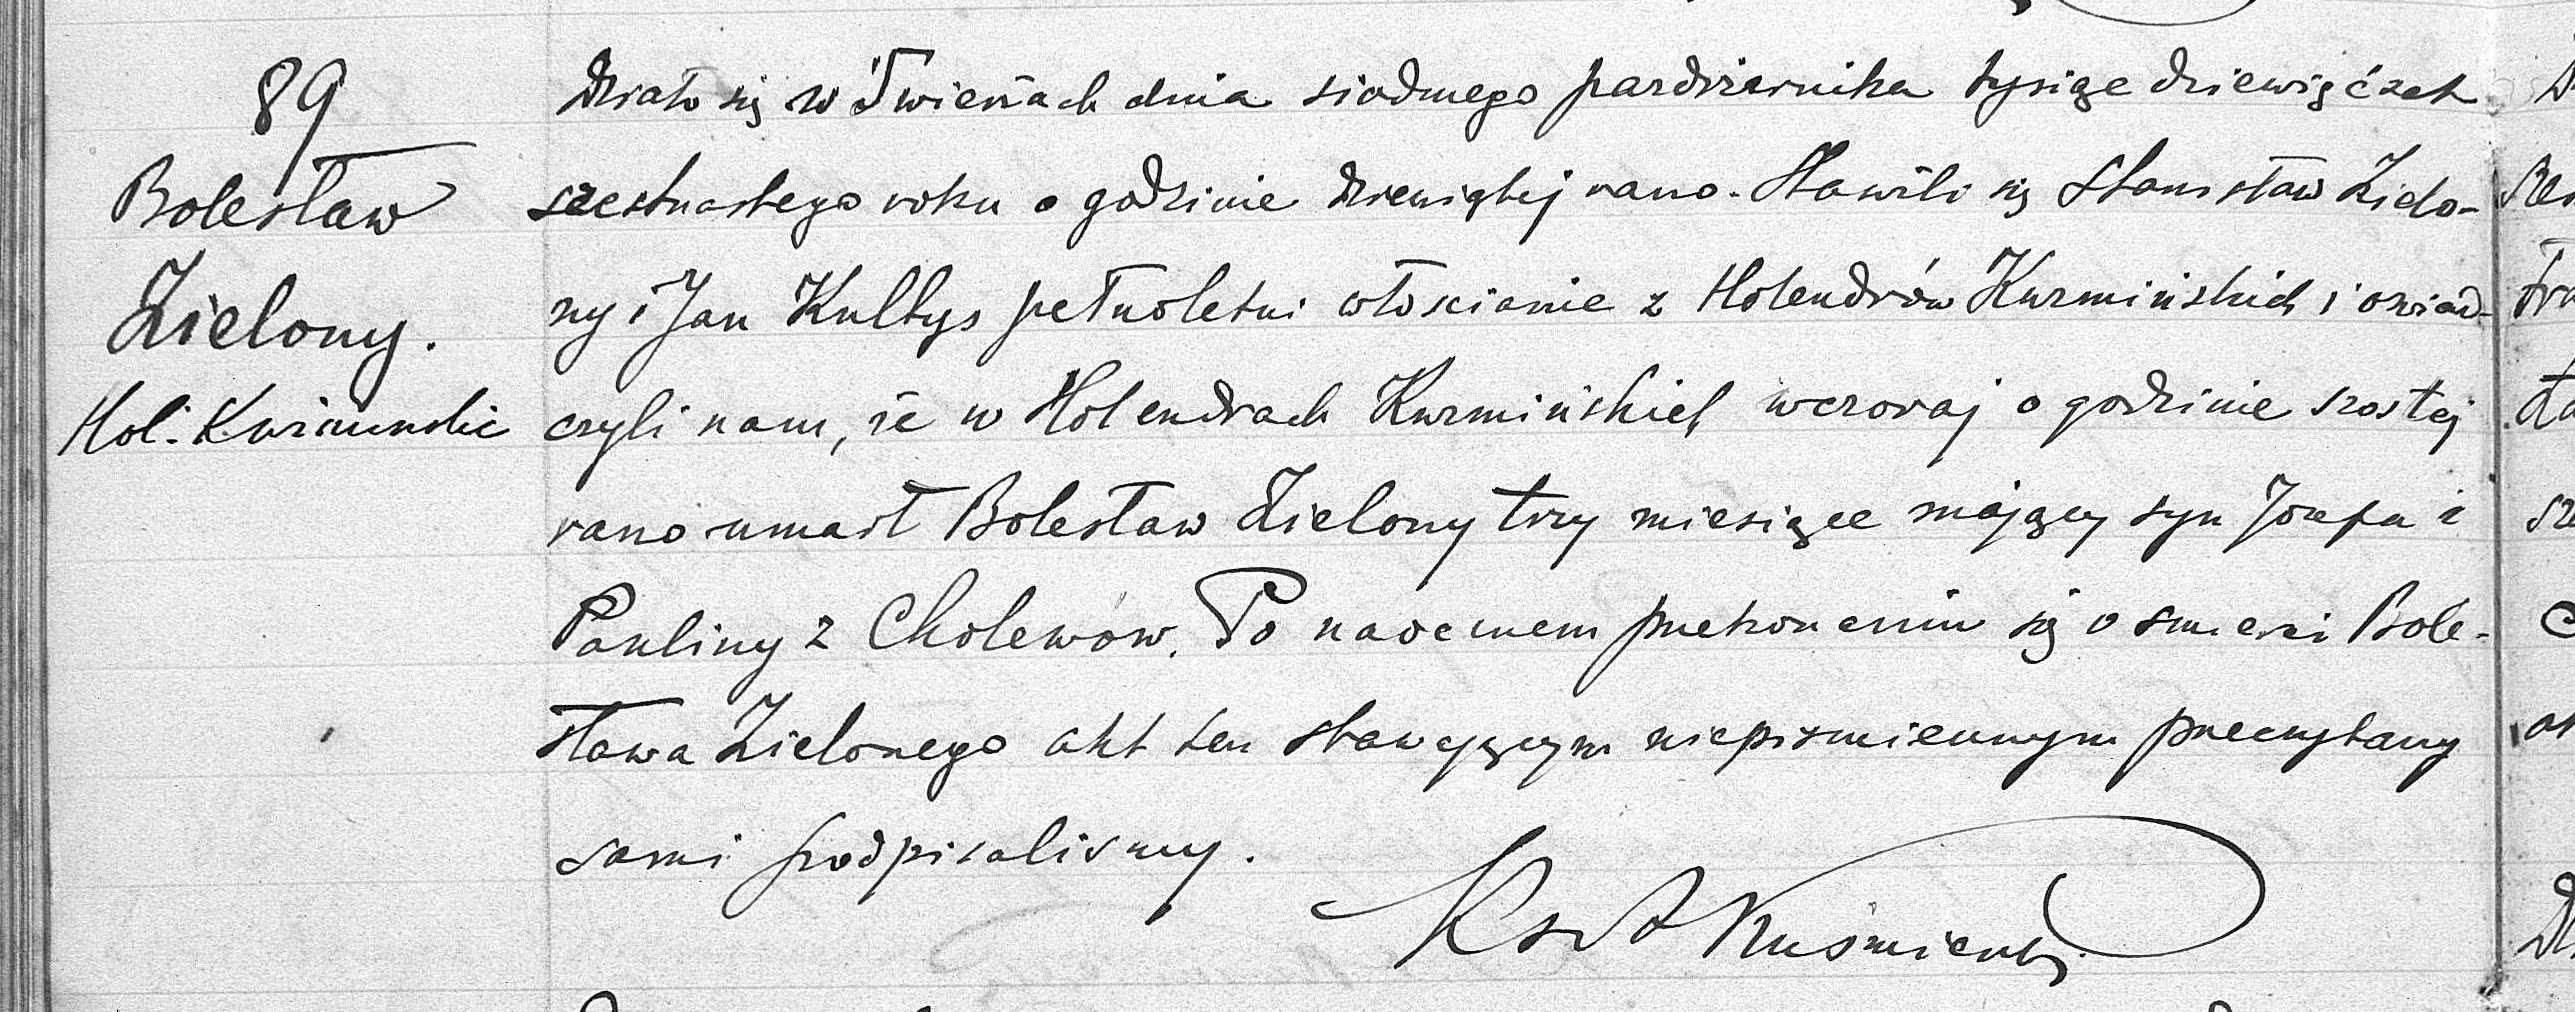 89
Bolesław
Zielony.
Hol. Kuźmińskie
Działo się w Świerżach dnia siodmego pazdziernika tysiąc dziewięćset
szesnastego roku o godzinie dziewiątej rano. Stawili się Stanisław Zielo-
ny i Jan Kultys pełnoletni włoscianie z Holendrów Kuzmińskich i oswiad-
czyli nam, że w Holendrach Kuzmińskich wczoraj o godzinie szostej
rano umarł Bolesław Zielony trzy miesiące mający syn Jozefa i
Pauliny z Cholewow. Po naocznem przekonaniu się o smierci Bole-
sława Zielonego akt ten stawającym niepismiennym przeczytany
sami podpisalismy.